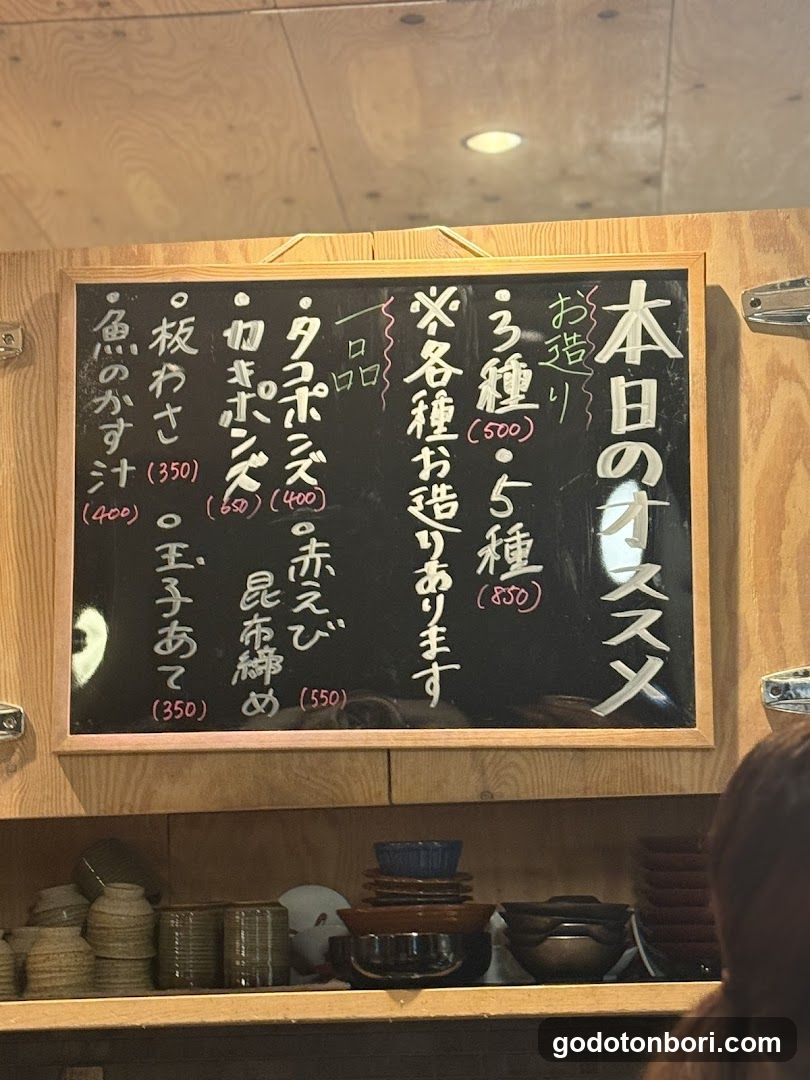 本日のオススメ
お造り
・3種
(500)
・5種
(850)
※各種お造りあります
一品
・タコポンズ
(400)
・赤えび
昆布締め
(550)
・カキポンズ
(650)
・板わさ
(350)
・玉子あて
(350)
・魚のかす汁
(400)
godotonbori.com